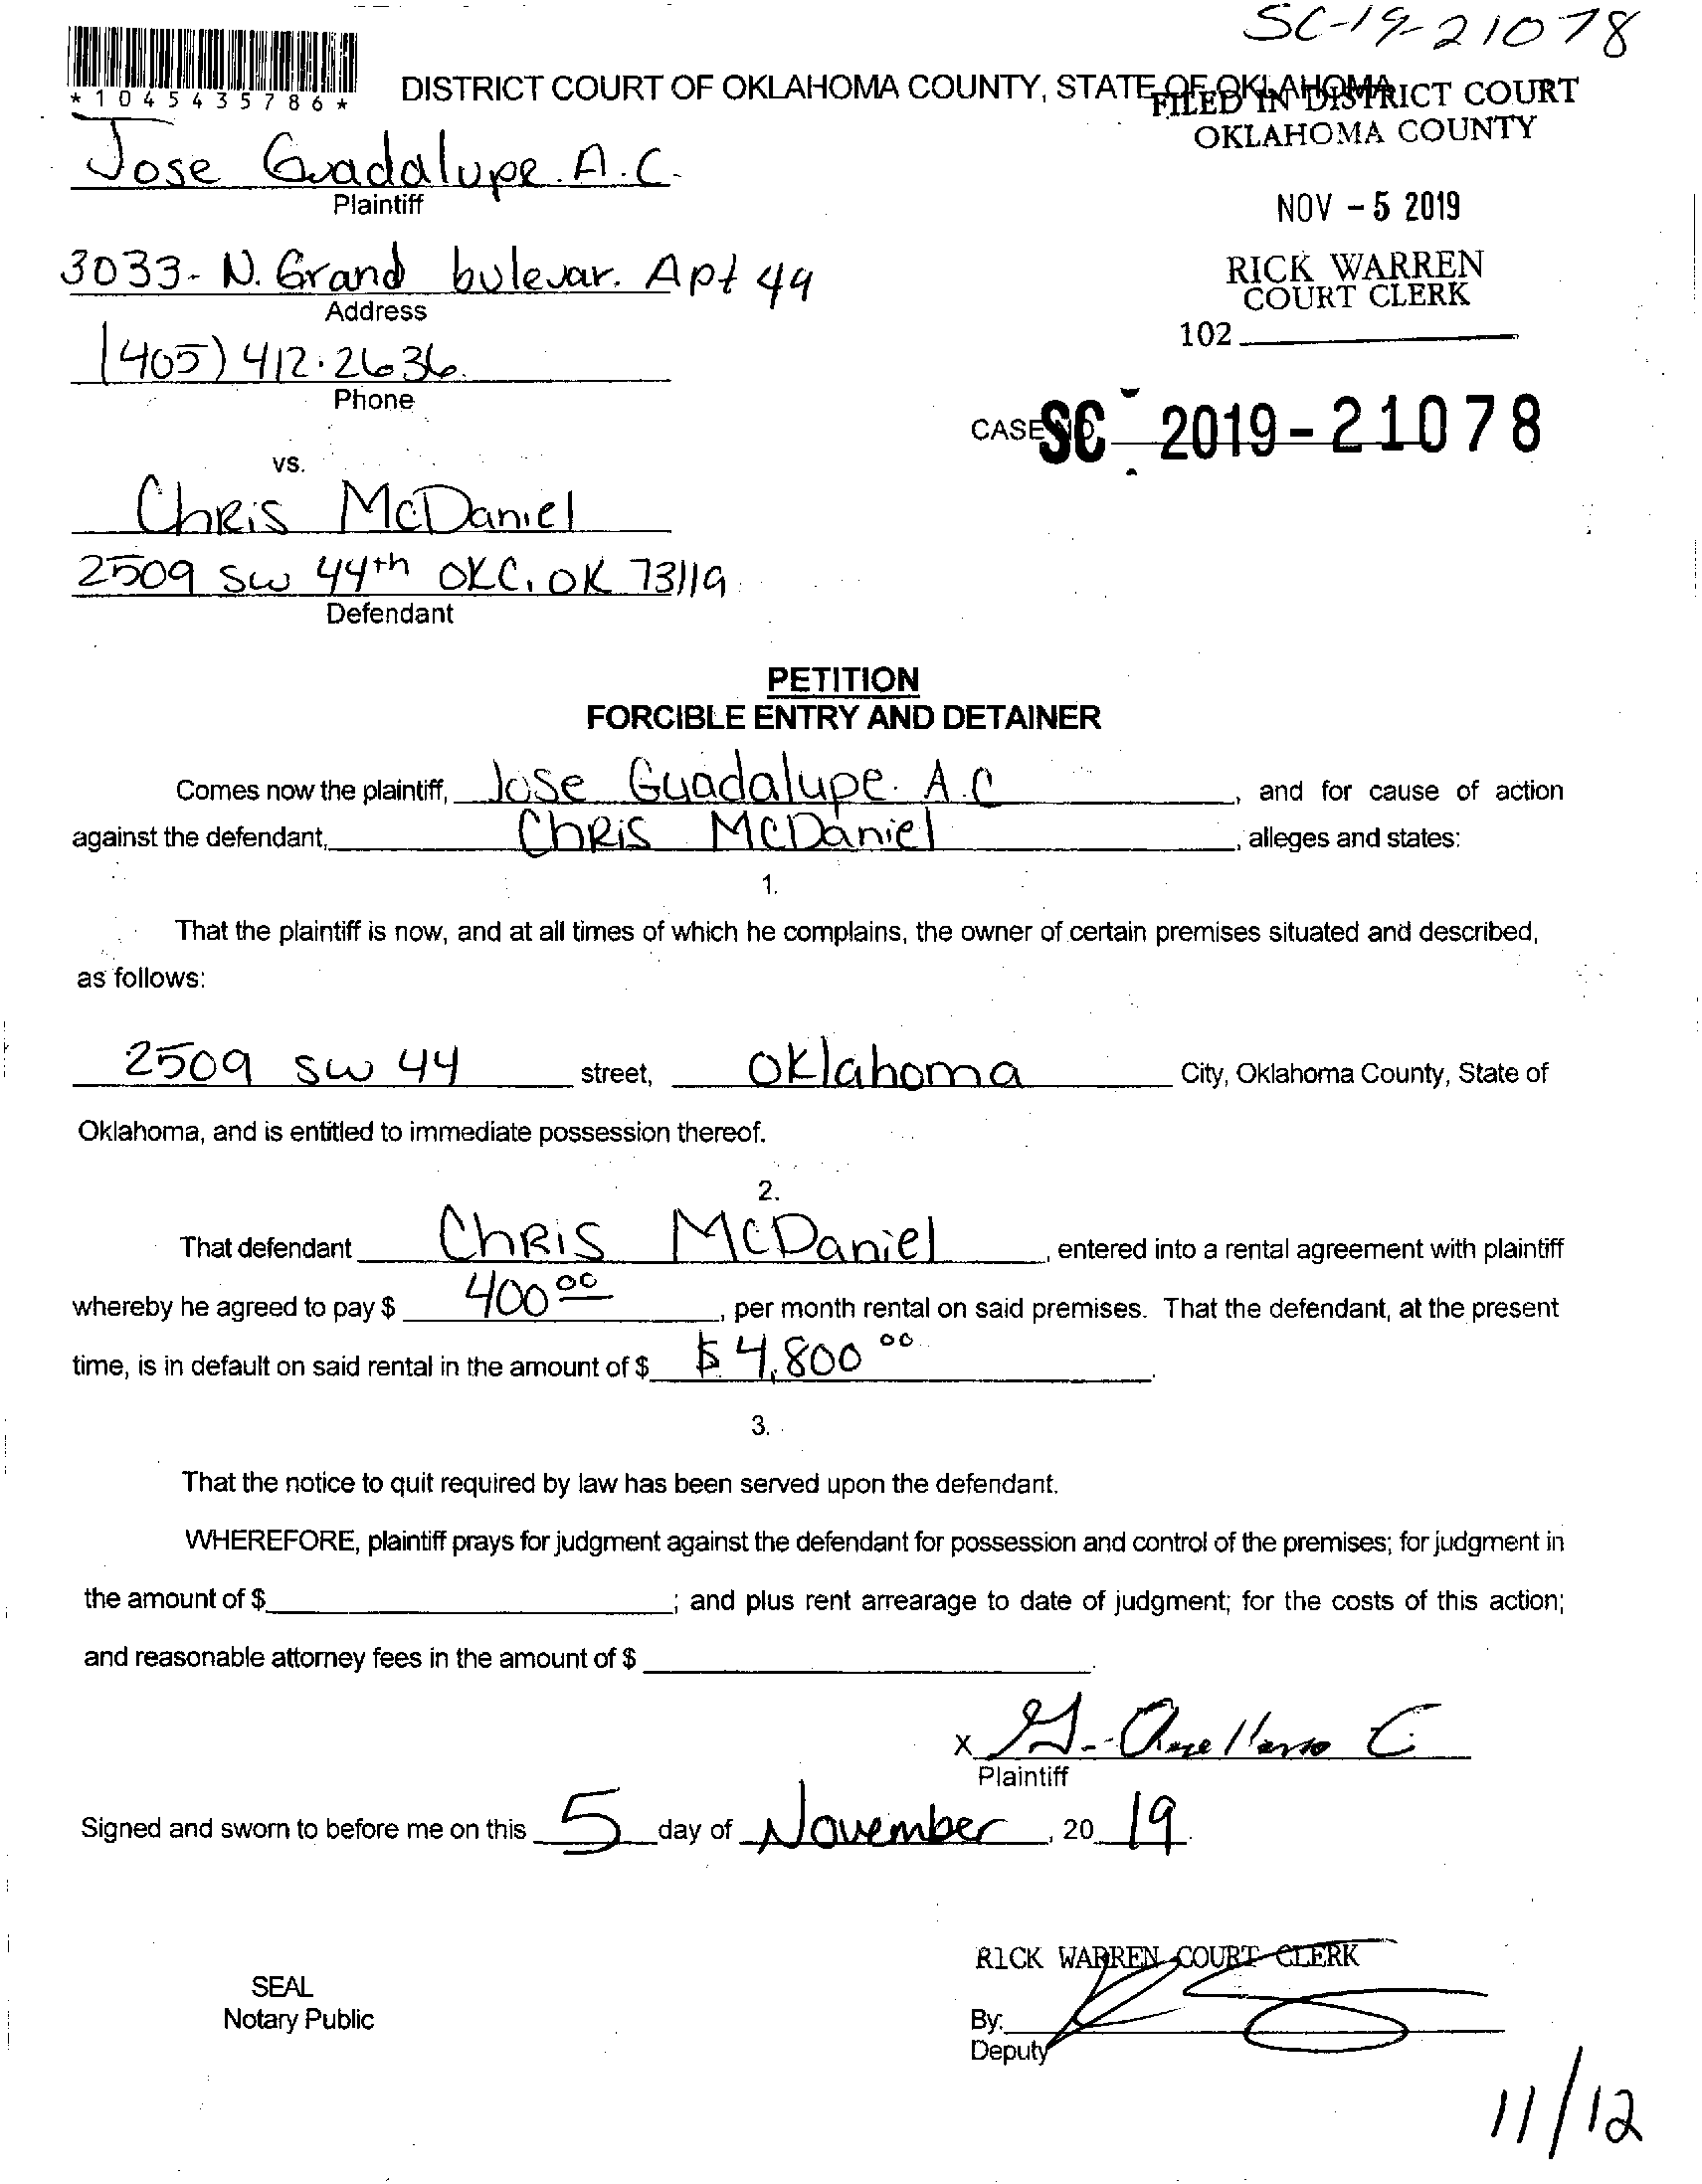 SC-19-21078
*1045435786*
DISTRICT COURT OF OKLAHOMA COUNTY, STATE OF OKLAHOMA
FILED IN DISTRICT COURT
OKLAHOMA COUNTY
Jose Guadalupe. A.C.
Plaintiff
NOV - 5 2019
3033- N. Grand bulevar. Apt 49
Address
RICK WARREN
COURT CLERK
102
(405) 412.2636.
Phone
CASE NO. SC - 2019-21078
vs.
Chris McDaniel
2509 SW 44th OKC, OK 73119
Defendant
PETITION
FORCIBLE ENTRY AND DETAINER
Comes now the plaintiff, Jose Guadalupe. A.C, and for cause of action
against the defendant, Chris McDaniel, alleges and states:
1.
That the plaintiff is now, and at all times of which he complains, the owner of certain premises situated and described,
as follows:
2509 SW 44 street, Oklahoma City, Oklahoma County, State of
Oklahoma, and is entitled to immediate possession thereof.
2.
That defendant Chris McDaniel, entered into a rental agreement with plaintiff
whereby he agreed to pay $ 400 00, per month rental on said premises. That the defendant, at the present
time, is in default on said rental in the amount of $ $ 4,800 00.
3.
That the notice to quit required by law has been served upon the defendant.
WHEREFORE, plaintiff prays for judgment against the defendant for possession and control of the premises; for judgment in
the amount of $; and plus rent arrearage to date of judgment; for the costs of this action;
and reasonable attorney fees in the amount of $.
X G- Arellano C
Plaintiff
Signed and sworn to before me on this 5 day of November, 20 19.
RICK WARREN COURT CLERK
SEAL
Notary Public
By:
Deputy
11/12